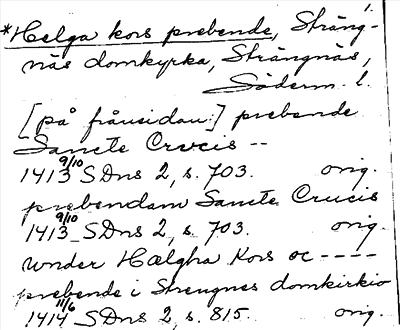 1.
*Helga kors prebende, Sträng-
näs domkyrka, Strängnäs,
Söderm. l.
[på frånsidan:] prebende
Sancte Crucis --
1413 9/10 SDns 2, s. 703. orig.
prebendam Sancte Crucis
1413 9/10 SDns 2, s. 703. orig.
under Hælgha Kors oc ----
prebende i Strengnes domkirkio
1414 11/6 SDns 2, s. 815. orig.